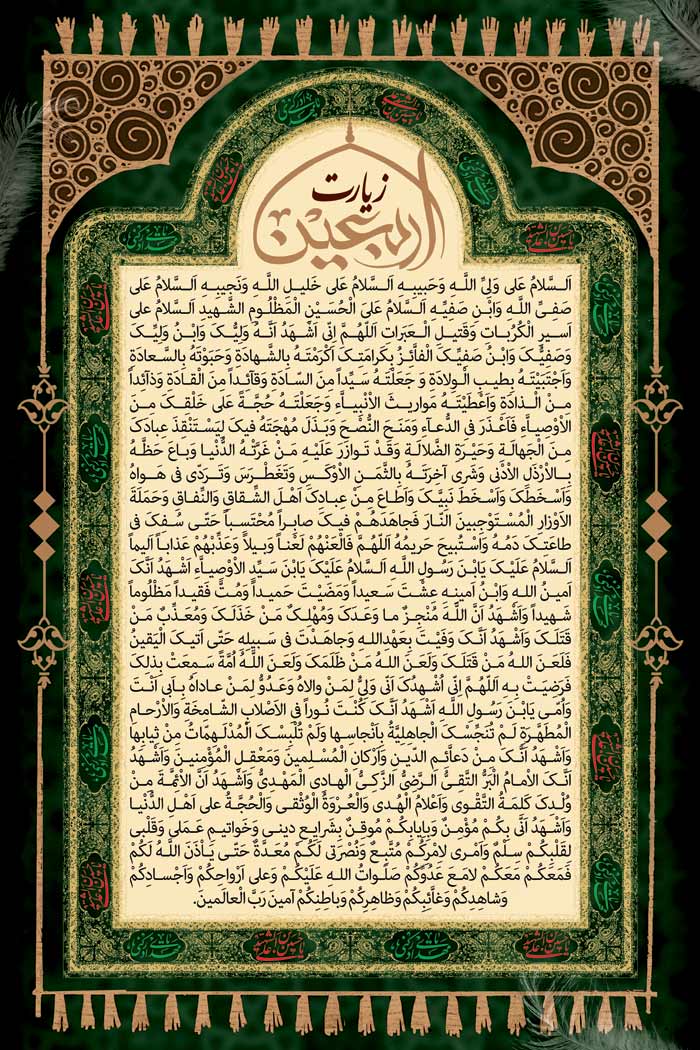 زیارت
اربعین
اَلسَّلامُ عَلی وَلِیِّ اللَّهِ وَحَبیبِهِ اَلسَّلامُ عَلی خَلیلِ اللَّهِ وَنَجیبِهِ اَلسَّلامُ عَلی
صَفِیِّ اللَّهِ وَابْنِ صَفِیِّهِ اَلسَّلامُ عَلیَ الْحُسَیْنِ الْمَظْلُومِ الشَّهیدِ اَلسَّلامُ علی
اَسیرِ الْکُرُباتِ وَقَتیلِ الْعَبَراتِ اَللّهُمَّ اِنّی اَشْهَدُ اَنَّهُ وَلِیُّکَ وَابْنُ وَلِیِّکَ
وَصَفِیُّکَ وَابْنُ صَفِیِّکَ الْفاَّئِزُ بِکَرامَتِکَ اَکْرَمْتَهُ بِالشَّهادَةِ وَحَبَوْتَهُ بِالسَّعادَةِ
وَاَجْتَبَیْتَهُ بِطیبِ الْوِلادَةِ وَ جَعَلْتَهُ سَیِّداً مِنَ السّادَةِ وَقآئِداً مِنَ الْقادَةِ وَذآئِداً
مِنْ الْذادَةِ وَاَعْطَیْتَهُ مَواریثَ الاَْنْبِیاَّءِ وَجَعَلْتَهُ حُجَّةً عَلی خَلْقِکَ مِنَ
الاَْوْصِیاَّءِ فَاَعْذَرَ فیِ الدُّعآءِ وَمَنَحَ النُّصْحَ وَبَذَلَ مُهْجَتَهُ فیکَ لِیَسْتَنْقِذَ عِبادَکَ
مِنَ الْجَهالَةِ وَحَیْرَةِ الضَّلالَةِ وَقَدْ تَوازَرَ عَلَیْهِ مَنْ غَرَّتْهُ الدُّنْیا وَباعَ حَظَّهُ
بِالاَْرْذَلِ الاَْدْنی وَشَری آخِرَتَهُ بِالثَّمَنِ الاَْوْکَسِ وَتَغَطْرَسَ وَتَرَدّی فی هَواهُ
وَاَسْخَطَکَ وَاَسْخَطَ نَبِیَّکَ وَاَطاعَ مِنْ عِبادِکَ اَهْلَ الشِّقاقِ وَالنِّفاقِ وَحَمَلَةَ
الاَْوْزارِ الْمُسْتَوْجِبینَ النّارَ فَجاهَدَهُمْ فیکَ صابِراً مُحْتَسِباً حَتّی سُفِکَ فی
طاعَتِکَ دَمُهُ وَاسْتُبیحَ حَریمُهُ اَللّهُمَّ فَالْعَنْهُمْ لَعْناً وَبیلاً وَعَذِّبْهُمْ عَذاباً اَلیماً
اَلسَّلامُ عَلَیْکَ یَابْنَ رَسُولِ اللَّهِ اَلسَّلامُ عَلَیْکَ یَابْنَ سَیِّدِ الاَْوْصِیاَّءِ اَشْهَدُ اَنَّکَ
اَمینُ اللهِ وَابْنُ اَمینِهِ عِشْتَ سَعیداً وَمَضَیْتَ حَمیداً وَمُتَّ فَقیداً مَظْلُوماً
شَهیداً وَاَشْهَدُ اَنَّ اللَّهَ مُنْجِزٌ ما وَعَدَکَ وَمُهْلِکٌ مَنْ خَذَلَکَ وَمُعَذِّبٌ مَنْ
قَتَلَکَ وَاَشْهَدُ اَنَّکَ وَفَیْتَ بِعَهْدِاللهِ وَجاهَدْتَ فی سَبیلِهِ حَتّی اَتیکَ الْیَقینُ
فَلَعَنَ اللهُ مَنْ قَتَلَکَ وَلَعَنَ اللهُ مَنْ ظَلَمَکَ وَلَعَنَ اللَّهُ اُمَّةً سَمِعَتْ بِذلِکَ
فَرَضِیَتْ بِهِ اَللّهُمَّ اِنّی اُشْهِدُکَ اَنّی وَلِیٌّ لِمَنْ والاهُ وَعَدُوٌّ لِمَنْ عاداهُ بِاَبی اَنْتَ
وَاُمّی یَابْنَ رَسُولِ اللَّهِ اَشْهَدُ اَنَّکَ کُنْتَ نُوراً فیِ الاَْصْلابِ الشّامِخَةِ وَالاَْرْحامِ
الْمُطَهَّرَةِ لَمْ تُنَجِّسْکَ الْجاهِلِیَّةُ بِاَنْجاسِها وَلَمْ تُلْبِسْکَ الْمُدْلَهِمّاتُ مِنْ ثِیابِها
وَاَشْهَدُ اَنَّکَ مِنْ دَعاَّئِمِ الدّینِ وَاَرْکانِ الْمُسْلِمینَ وَمَعْقِلِ الْمُؤْمِنینَ وَاَشْهَدُ
اَنَّکَ الاِْمامُ الْبَرُّ التَّقِیُّ الرَّضِیُّ الزَّکِیُّ الْهادِی الْمَهْدِیُّ وَاَشْهَدُ اَنَّ الاَْئِمَّةَ مِنْ
وُلْدِکَ کَلِمَةُ التَّقْوی وَاَعْلامُ الْهُدی وَالْعُرْوَةُ الْوُثْقی وَالْحُجَّةُ علی اَهْلِ الدُّنْیا
وَاَشْهَدُ اَنّی بِکُمْ مُؤْمِنٌ وَبِاِیابِکُمْ مُوقِنٌ بِشَرایِعِ دینی وَخَواتیمِ عَمَلی وَقَلْبی
لِقَلْبِکُمْ سِلْمٌ وَاَمْری لاَِمْرِکُمْ مُتَّبِعٌ وَنُصْرَتی لَکُمْ مُعَدَّةٌ حَتّی یَاْذَنَ اللَّهُ لَکُمْ
فَمَعَکُمْ مَعَکُمْ لامَعَ عَدُوِّکُمْ صَلَواتُ اللهِ عَلَیْکُمْ وَعلی اَرْواحِکُمْ وَاَجْسادِکُمْ
وَشاهِدِکُمْ وَغاَّئِبِکُمْ وَظاهِرِکُمْ وَباطِنِکُمْ آمینَ رَبَّ الْعالَمینَ.